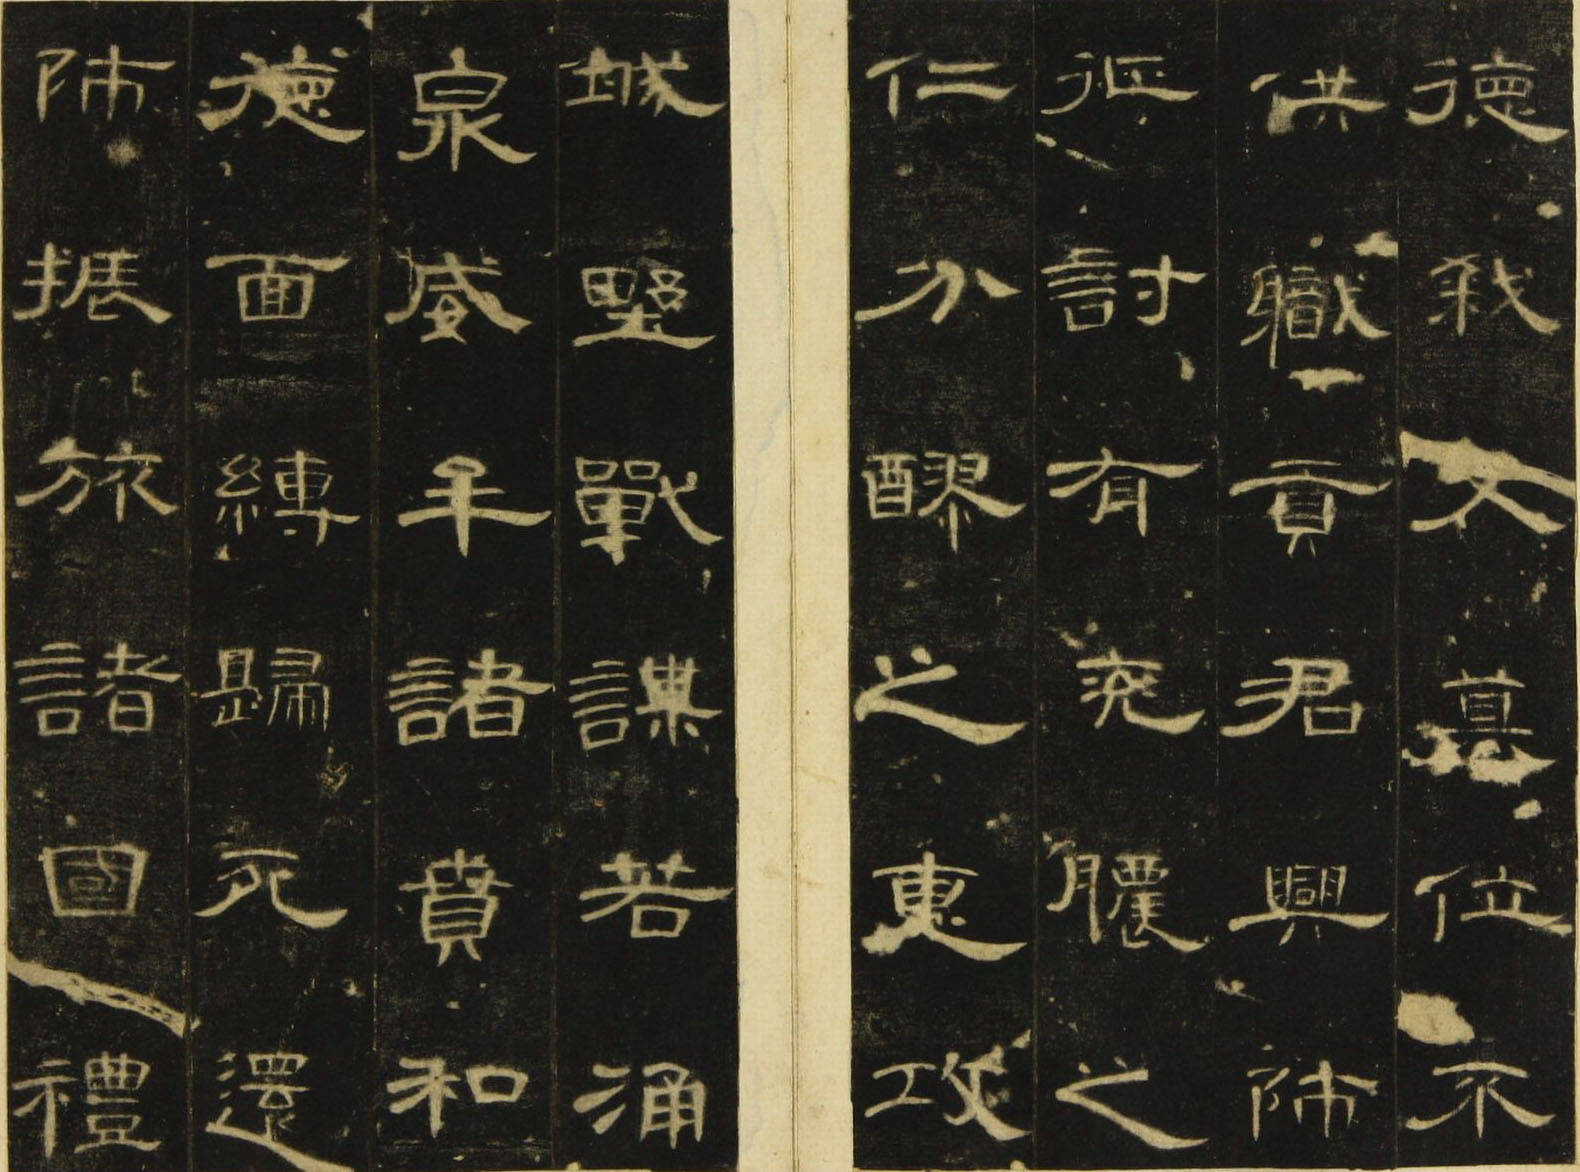 德弒父篡位不
供職貢君興師
征討有兖膿之
仁分醪之惠攻
城野戰謀若涌
泉威牟諸賁和
德面縛歸死還
師振旅諸國禮